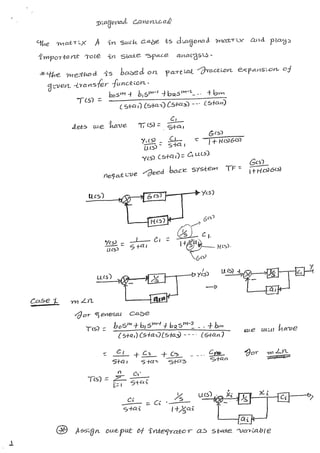 Diagonal Canonical
The matrix A in such case is diagonal matrix and plays
important role in state space analysis.
* The method is based on partial fraction expansion of
given transfer function.
T(S) = b₀Sᵐ + b₁Sᵐ⁻¹ + b₂Sᵐ⁻²... + bm / (S+a₁)(S+a₂)(S+a₃) --- (S+an)
Lets we have T₁(S) = C₁ / S+a₁
Y₁(S) / U(S) = C₁ / S+a₁ = G(S) / 1+H(S)G(S)
Y(S) (S+a₁) = C₁U(S)
negative feed back system TF = G(S) / 1+H(S)G(S)
U(S) G(S) Y(S)
H(S)
Y(S) / U(S) = 1 / S+a₁ C₁ = 1/S / 1+1/S a₁ C₁
G(S)
H(S)
G(S)
U(S) 1/S Y(S) → U(S) 1/S C₁ Y
a₁
Case 1 m<n
For general case
T(S) = b₀Sᵐ + b₁Sᵐ⁻¹ + b₂Sᵐ⁻² ... + bm / (S+a₁)(S+a₂)(S+a₃) --- (S+an) we will have
= C₁ / S+a₁ + C₂ / S+a₂ + C₃ / S+a₃ --- Cn / S+an for m<n
T(S) = n Σ i=1 Ci / S+ai
Ci / S+ai = Ci · 1/S / 1+1/S ai
U(S) ẋi 1/S xi Ci
ai
* Assign output of integrator as state variable
1